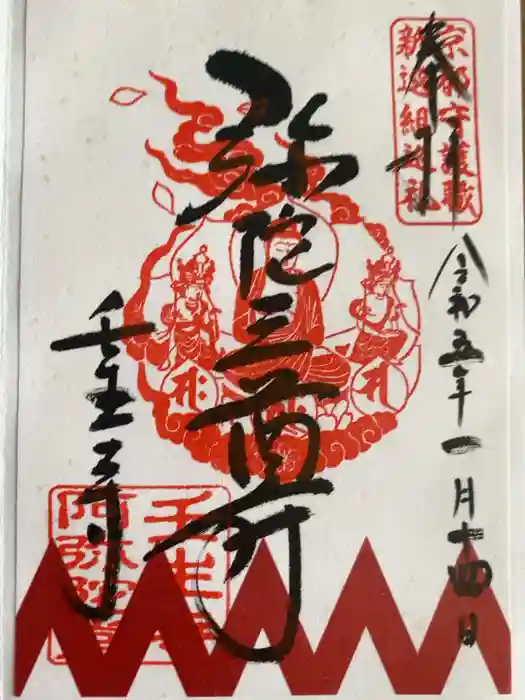 奉拝
京都守護職
新選組菩提社
令和五年一月十四日
弥陀三尊
壬生寺
壬生寺
阿弥陀堂